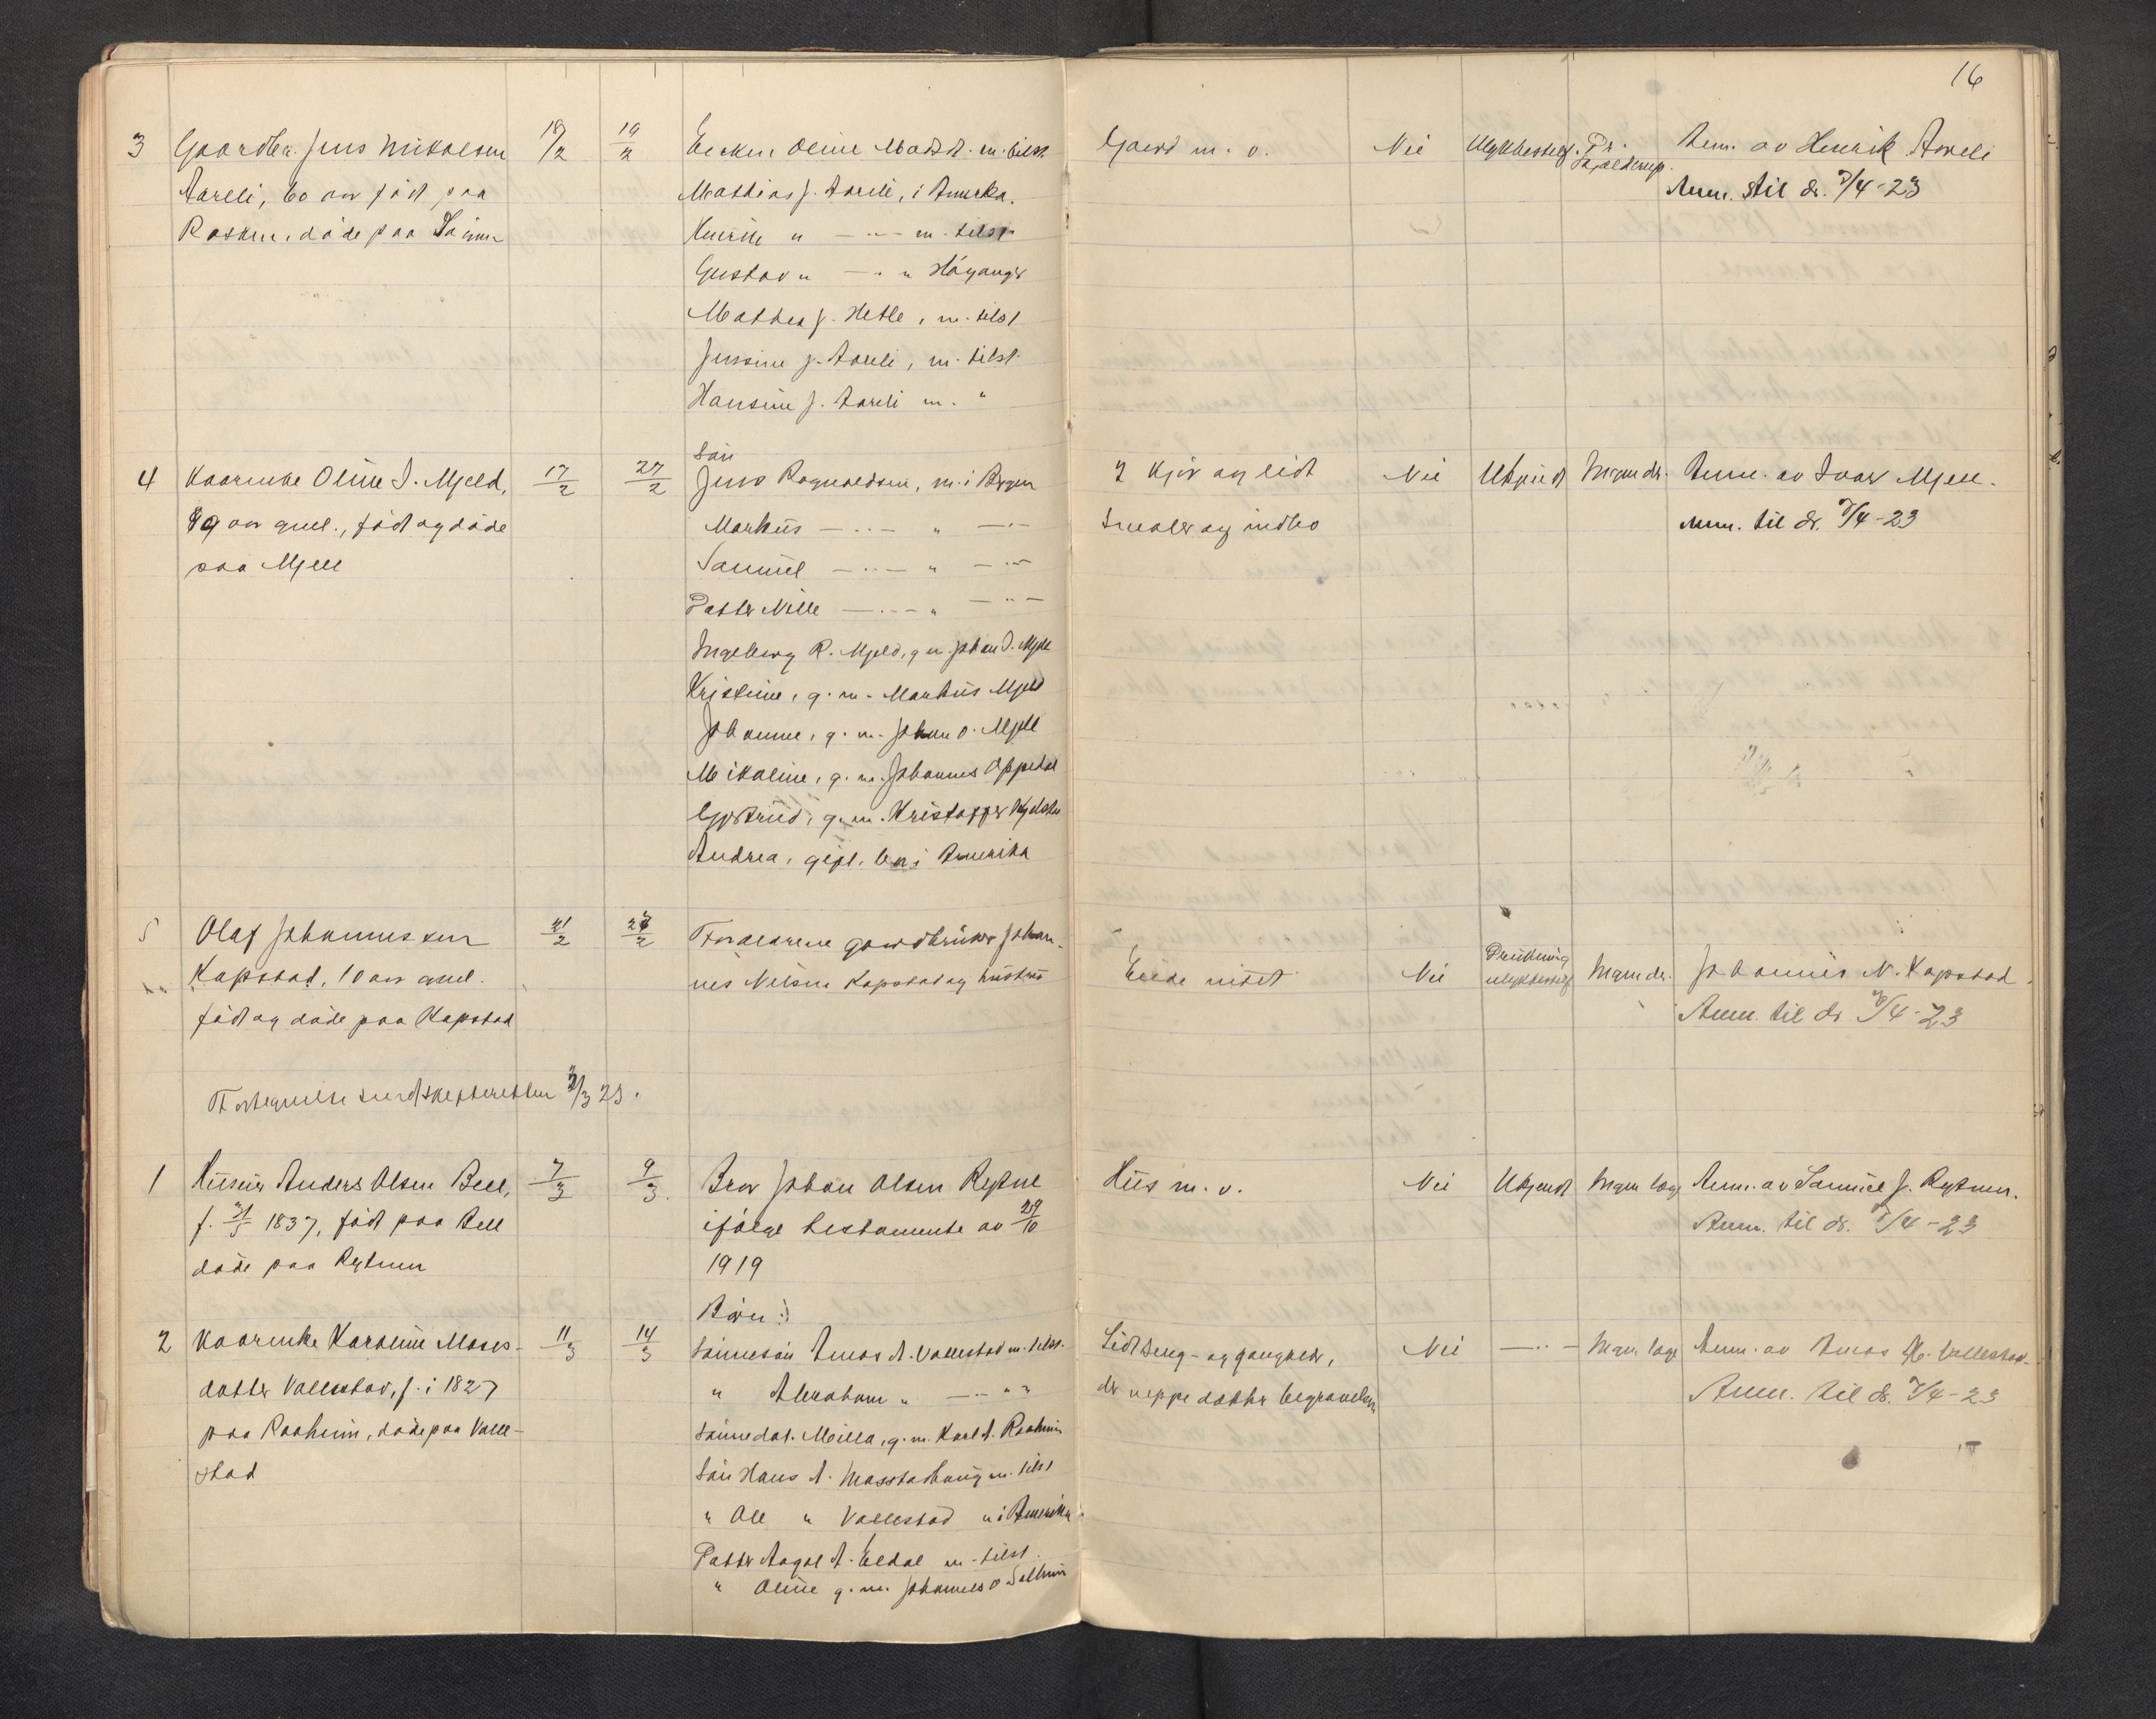 16
3 Gaardbr. Jens Mikalsen 18/2 19/2 Enken Oline Madsd. m. tilst. Gaard m. v. Nei Ulykkestilf. Dr. Anm. av Henrik Aareli
Aareli, 60 aar født paa Mathias J. Aareli, i Amerka. Skjelderup. Anm. til dr. 7/4-23
Rasken, døde paa Henrik " — " — m. tilst
Gustav " — " — " Høyanger
Mathea J. Hetle, m. tilst
Jensine J. Aareli, m. tilst.
Hansine J. Aareli m. "
Søn
4 Kaarenke Oline I. Mjeld, 17/2 27/2 Jens Ragnvaldsen, m. i Bergen 2 kjør og lidt Nei Ukjendt Ingen dr. Anm. av Ivar Mjell.
89 aar gml., født og døde Markus — " — " — " — smaler og indbo Anm. til dr. 7/4-23
paa Mjell Samuel — " — " — " —
Datter Nille — " — " — " —
Ingeborg R. Mjeld, g. m. Johan I. Mjell
Kristine, g. m. Markus Mjeld
Johanne, g. m. Johan O. Mjell
Mikaline, g. m. Johannes Oppedal
Gjertrud, g. m. Kristoffer
Andrea, gift, bor i Amerika
5 Olaf Johannessen 21/2 27/2 Forældrene gaardbruker Johan- Drukning
Kapstad, 10 aar gml. nes Nilsen Kapstad og hustru Eiede intet Nei ulykkestilf Ingen dr. Johannes N. Kapstad.
født og døde paa Kapstad Anm. til dr. 7/4-23
Fortegnelse sendt skifteretten 3/3 23.
1 Anders Olsen Bell, 7/3 9/3. Bror Johan Olsen Rytne Hus m. v. Nei Ukjendt Ingen læge Anm. av Samuel J. Rytnen.
f. 31/5 1837, født paa Bell ifølge testamente av 29/10 Anm. til dr. 7/4-23
døde paa Rytnen 1919
Børn:
2 Kaarenke Karoline Moses- 11/3 14/3 Sønnesøn Amas A. Vallestad m. tilst. Lidt seng- og gangklær, Nei — " — Ingen læge Anm. av Amas A. Vallestad
datter Vallestad, f. i 1827 " Abraham " — " — " " der neppe dækker begravelsen Anm. til dr. 7/4-23
paa Raaheim, døde paa Valle- Sønnedat. Milla, g. m. Karl A. Raaheim
stad Søn Hans A. Masstadhaug m. tilst
" Ole " Vallestad " i Amerika
Datter Aagot A. Eldal m. tilst.
" Oline g. m. Johannes O. Solheim